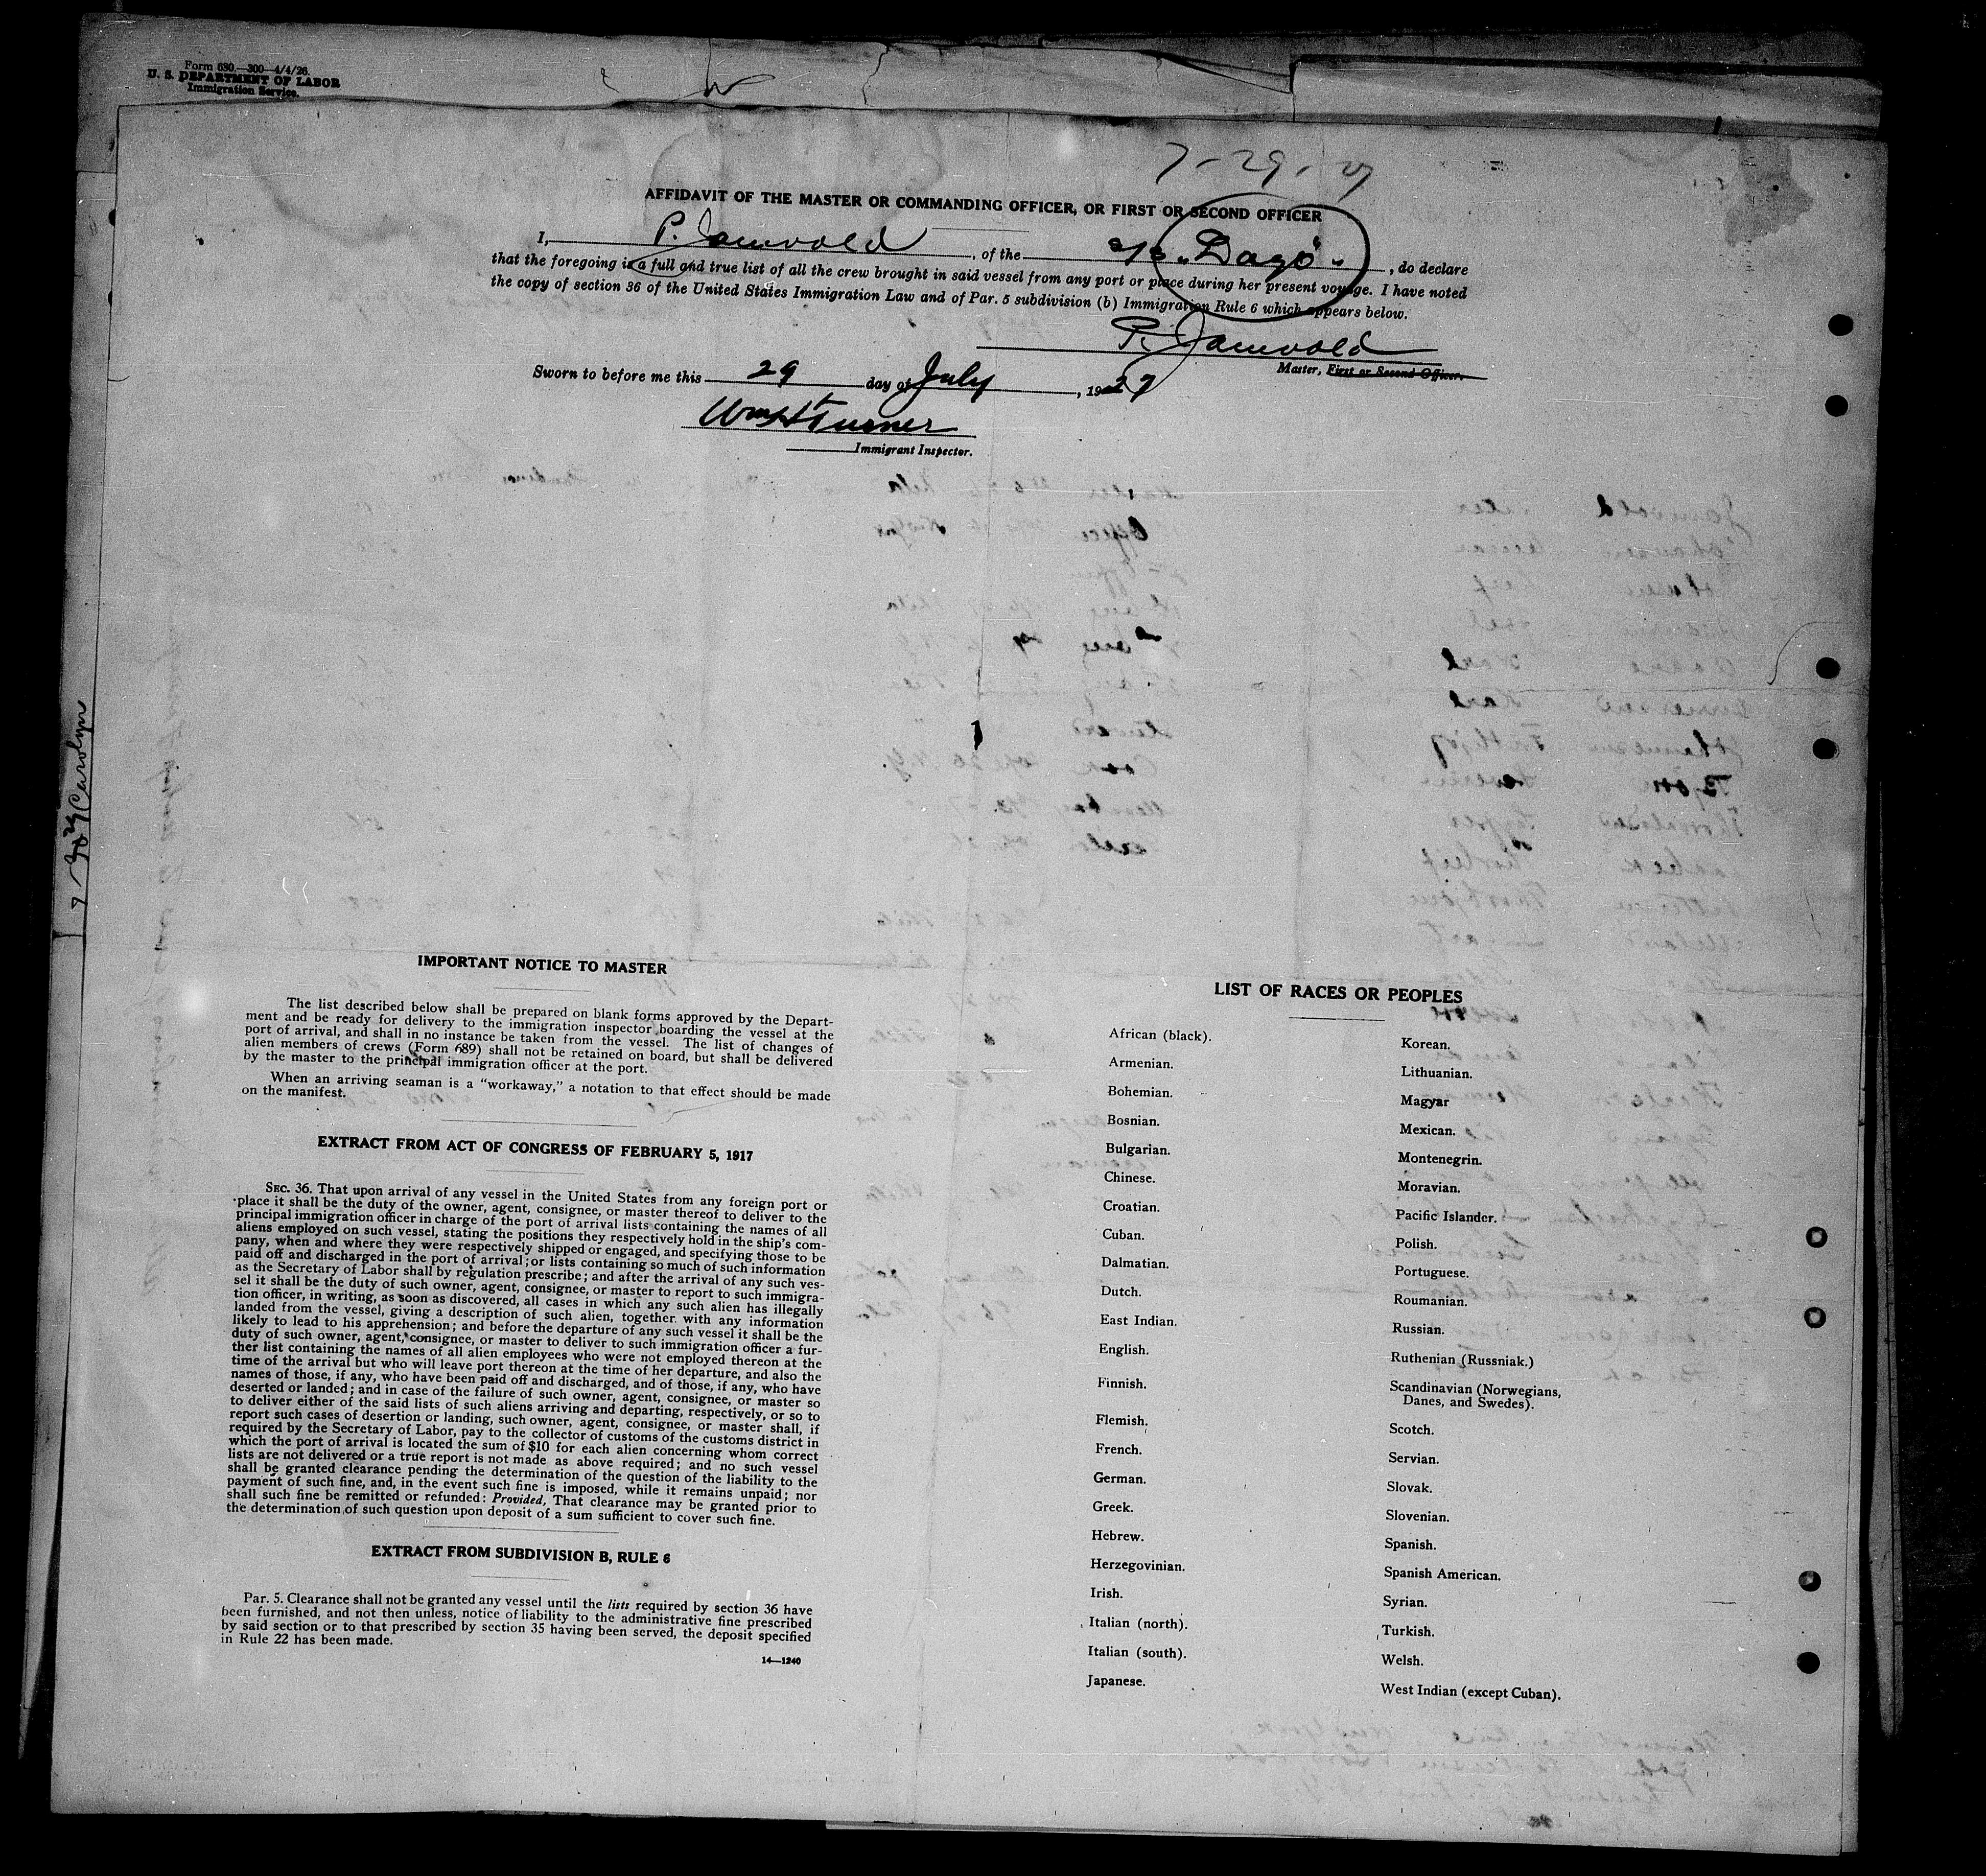 Form 680.—300—4/4/26.
U. S. DEPARTMENT OF LABOR
Immigration Service.
7-29-27
AFFIDAVIT OF THE MASTER OR COMMANDING OFFICER, OR FIRST OR SECOND OFFICER
I, P. Jamvold, of the s/s "Dagö", do declare
that the foregoing is a full and true list of all the crew brought in said vessel from any port or place during her present voyage. I have noted
the copy of section 36 of the United States Immigration Law and of Par. 5 subdivision (b) Immigration Rule 6 which appears below.
P. Jamvold
Master, First or Second Officer.
Sworn to before me this 29 day of July, 1927
Wm H Turner
Immigrant Inspector.
Carolyn
IMPORTANT NOTICE TO MASTER
The list described below shall be prepared on blank forms approved by the Depart-
ment and be ready for delivery to the immigration inspector boarding the vessel at the
port of arrival, and shall in no instance be taken from the vessel. The list of changes of
alien members of crews (Form 689) shall not be retained on board, but shall be delivered
by the master to the principal immigration officer at the port.
When an arriving seaman is a "workaway," a notation to that effect should be made
on the manifest.
EXTRACT FROM ACT OF CONGRESS OF FEBRUARY 5, 1917
SEC. 36. That upon arrival of any vessel in the United States from any foreign port or
place it shall be the duty of the owner, agent, consignee, or master thereof to deliver to the
principal immigration officer in charge of the port of arrival lists containing the names of all
aliens employed on such vessel, stating the positions they respectively hold in the ship's com-
pany, when and where they were respectively shipped or engaged, and specifying those to be
paid off and discharged in the port of arrival; or lists containing so much of such information
as the Secretary of Labor shall by regulation prescribe; and after the arrival of any such ves-
sel it shall be the duty of such owner, agent, consignee, or master to report to such immigra-
tion officer, in writing, as soon as discovered, all cases in which any such alien has illegally
landed from the vessel, giving a description of such alien, together with any information
likely to lead to his apprehension; and before the departure of any such vessel it shall be the
duty of such owner, agent, consignee, or master to deliver to such immigration officer a fur-
ther list containing the names of all alien employees who were not employed thereon at the
time of the arrival but who will leave port thereon at the time of her departure, and also the
names of those, if any, who have been paid off and discharged, and of those, if any, who have
deserted or landed; and in case of the failure of such owner, agent, consignee, or master so
to deliver either of the said lists of such aliens arriving and departing, respectively, or so to
report such cases of desertion or landing, such owner, agent, consignee, or master shall, if
required by the Secretary of Labor, pay to the collector of customs of the customs district in
which the port of arrival is located the sum of $10 for each alien concerning whom correct
lists are not delivered or a true report is not made as above required; and no such vessel
shall be granted clearance pending the determination of the question of the liability to the
payment of such fine, and, in the event such fine is imposed, while it remains unpaid; nor
shall such fine be remitted or refunded: Provided, That clearance may be granted prior to
the determination of such question upon deposit of a sum sufficient to cover such fine.
EXTRACT FROM SUBDIVISION B, RULE 6
Par. 5. Clearance shall not be granted any vessel until the lists required by section 36 have
been furnished, and not then unless, notice of liability to the administrative fine prescribed
by said section or to that prescribed by section 35 having been served, the deposit specified
in Rule 22 has been made.
14—1240
LIST OF RACES OR PEOPLES
African (black).
Armenian.
Bohemian.
Bosnian.
Bulgarian.
Chinese.
Croatian.
Cuban.
Dalmatian.
Dutch.
East Indian.
English.
Finnish.
Flemish.
French.
German.
Greek.
Hebrew.
Herzegovinian.
Irish.
Italian (north).
Italian (south).
Japanese.
Korean.
Lithuanian.
Magyar
Mexican.
Montenegrin.
Moravian.
Pacific Islander.
Polish.
Portuguese.
Roumanian.
Russian.
Ruthenian (Russniak.)
Scandinavian (Norwegians,
Danes, and Swedes).
Scotch.
Servian.
Slovak.
Slovenian.
Spanish.
Spanish American.
Syrian.
Turkish.
Welsh.
West Indian (except Cuban).